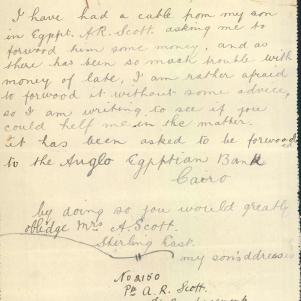 I have had a cable from my son
in Egypt. A.R. Scott. asking me to
forwood him some money, and as
there has been so much trouble with
money of late, I am rather afraid
to forwood it without some advice,
so I am writing to see if you
could help me in the matter.
it has been asked to be forwooded
to the Anglo Egyptian Bank
Cairo
by doing so you would greatly
oblidge Mrs A. Scott.
Sterling East.
my son's ddress
No 2150
Pte A. R. Scott.